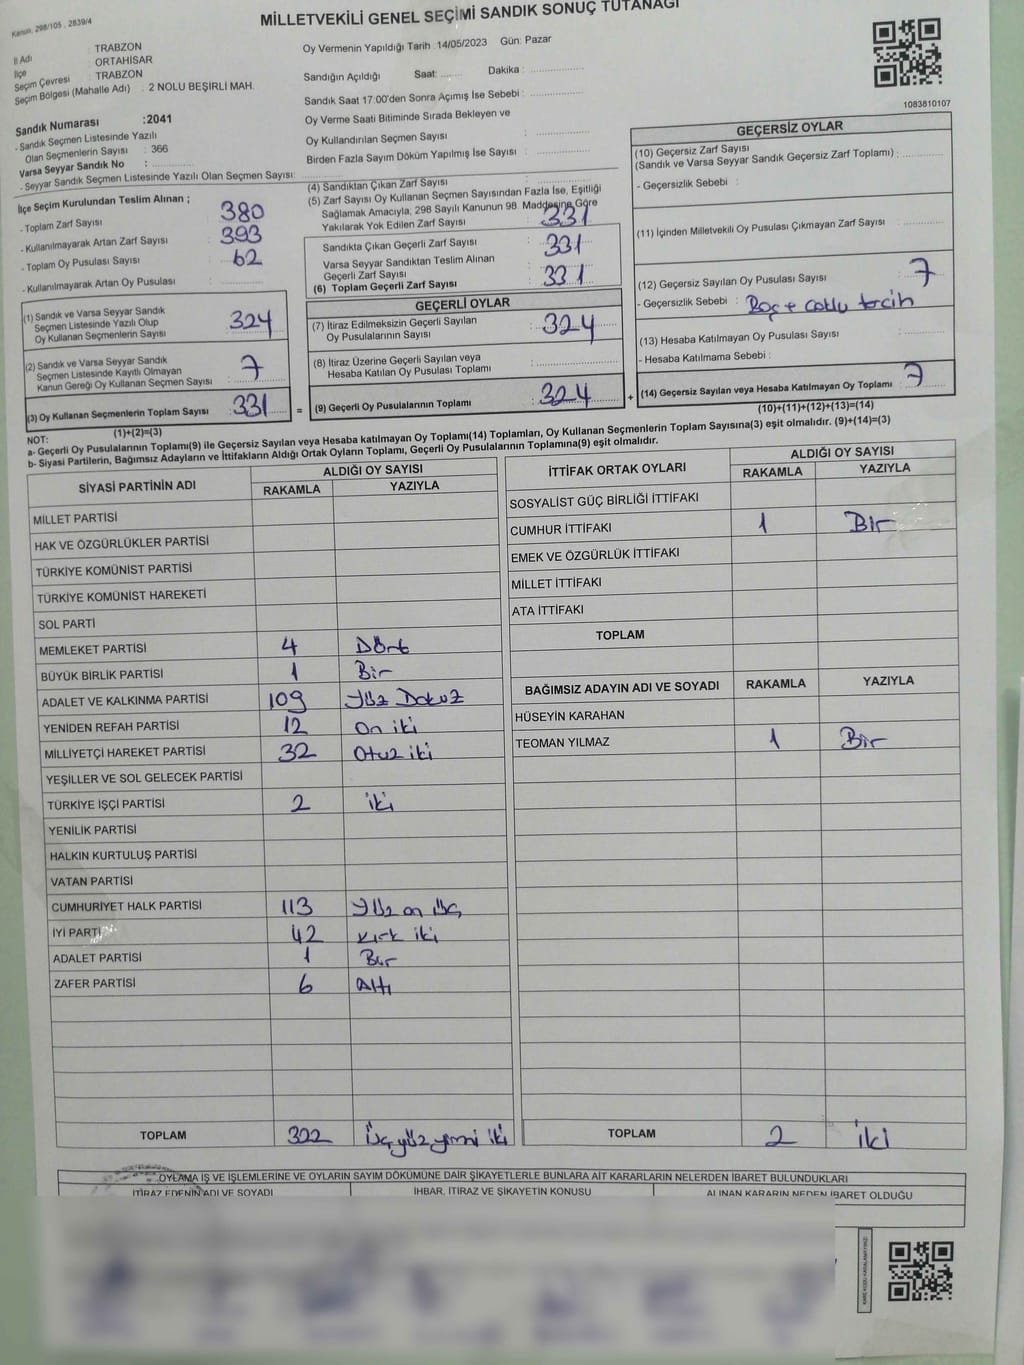 Kanun, 298/105 , 2839/4
MİLLETVEKİLİ GENEL SEÇİMİ SANDIK SONUÇ TUTANAĞI
İl Adı : TRABZON
İlçe : ORTAHİSAR
Seçim Çevresi : TRABZON
Seçim Bölgesi (Mahalle Adı) : 2 NOLU BEŞİRLİ MAH.
Sandık Numarası :2041
- Sandık Seçmen Listesinde Yazılı
Olan Seçmenlerin Sayısı : 366
Varsa Seyyar Sandık No :
- Seyyar Sandık Seçmen Listesinde Yazılı Olan Seçmen Sayısı:
Oy Vermenin Yapıldığı Tarih :14/05/2023 Gün: Pazar
Sandığın Açıldığı Saat: Dakika :
Sandık Saat 17:00'den Sonra Açımış İse Sebebi :
Oy Verme Saati Bitiminde Sırada Bekleyen ve
Oy Kullandırılan Seçmen Sayısı :
Birden Fazla Sayım Döküm Yapılmış İse Sayısı :
1083810107
İlçe Seçim Kurulundan Teslim Alınan ;
- Toplam Zarf Sayısı : 380
- Kullanılmayarak Artan Zarf Sayısı : 393
- Toplam Oy Pusulası Sayısı : 62
- Kullanılmayarak Artan Oy Pusulası :
(1) Sandık ve Varsa Seyyar Sandık
Seçmen Listesinde Yazılı Olup
Oy Kullanan Seçmenlerin Sayısı : 324
(2) Sandık ve Varsa Seyyar Sandık
Seçmen Listesinde Kayıtlı Olmayan
Kanun Gereği Oy Kullanan Seçmen Sayısı : 7
(3) Oy Kullanan Seçmenlerin Toplam Sayısı : 331
(1)+(2)=(3)
(4) Sandıktan Çıkan Zarf Sayısı :
(5) Zarf Sayısı Oy Kullanan Seçmen Sayısından Fazla İse, Eşitliği
Sağlamak Amacıyla, 298 Sayılı Kanunun 98. Maddesine Göre
Yakılarak Yok Edilen Zarf Sayısı : 331
Sandıkta Çıkan Geçerli Zarf Sayısı : 331
Varsa Seyyar Sandıktan Teslim Alınan
Geçerli Zarf Sayısı
(6) Toplam Geçerli Zarf Sayısı : 331
GEÇERLİ OYLAR
(7) İtiraz Edilmeksizin Geçerli Sayılan
Oy Pusulalarının Sayısı : 324
(8) İtiraz Üzerine Geçerli Sayılan veya
Hesaba Katılan Oy Pusulası Toplamı :
= (9) Geçerli Oy Pusulalarının Toplamı : 324 +
GEÇERSİZ OYLAR
(10) Geçersiz Zarf Sayısı
(Sandık ve Varsa Seyyar Sandık Geçersiz Zarf Toplamı) :
- Geçersizlik Sebebi :
(11) İçinden Milletvekili Oy Pusulası Çıkmayan Zarf Sayısı :
(12) Geçersiz Sayılan Oy Pusulası Sayısı : 7
- Geçersizlik Sebebi : Boş + çoklu tercih
(13) Hesaba Katılmayan Oy Pusulası Sayısı :
- Hesaba Katılmama Sebebi :
(14) Geçersiz Sayılan veya Hesaba Katılmayan Oy Toplamı : 7
(10)+(11)+(12)+(13)=(14)
NOT:
a- Geçerli Oy Pusulalarının Toplamı(9) ile Geçersiz Sayılan veya Hesaba katılmayan Oy Toplamı(14) Toplamları, Oy Kullanan Seçmenlerin Toplam Sayısına(3) eşit olmalıdır. (9)+(14)=(3)
b- Siyasi Partilerin, Bağımsız Adayların ve İttifakların Aldığı Ortak Oyların Toplamı, Geçerli Oy Pusulalarının Toplamına(9) eşit olmalıdır.
SİYASİ PARTİNİN ADI ALDIĞI OY SAYISI
RAKAMLA YAZIYLA
MİLLET PARTİSİ
HAK VE ÖZGÜRLÜKLER PARTİSİ
TÜRKİYE KOMÜNİST PARTİSİ
TÜRKİYE KOMÜNİST HAREKETİ
SOL PARTİ
MEMLEKET PARTİSİ 4 Dört
BÜYÜK BİRLİK PARTİSİ 1 Bir
ADALET VE KALKINMA PARTİSİ 109 Yüz Dokuz
YENİDEN REFAH PARTİSİ 12 On iki
MİLLİYETÇİ HAREKET PARTİSİ 32 Otuz iki
YEŞİLLER VE SOL GELECEK PARTİSİ
TÜRKİYE İŞÇİ PARTİSİ 2 iki
YENİLİK PARTİSİ
HALKIN KURTULUŞ PARTİSİ
VATAN PARTİSİ
CUMHURİYET HALK PARTİSİ 113 Yüz on üç
İYİ PARTİ 42 Kırk iki
ADALET PARTİSİ 1 Bir
ZAFER PARTİSİ 6 Altı
TOPLAM 322 Üçyüzyirmi iki
İTTİFAK ORTAK OYLARI ALDIĞI OY SAYISI
RAKAMLA YAZIYLA
SOSYALİST GÜÇ BİRLİĞİ İTTİFAKI
CUMHUR İTTİFAKI 1 Bir
EMEK VE ÖZGÜRLÜK İTTİFAKI
MİLLET İTTİFAKI
ATA İTTİFAKI
TOPLAM
BAĞIMSIZ ADAYIN ADI VE SOYADI RAKAMLA YAZIYLA
HÜSEYİN KARAHAN
TEOMAN YILMAZ 1 Bir
TOPLAM 2 iki
OYLAMA İŞ VE İŞLEMLERİNE VE OYLARIN SAYIM DÖKÜMÜNE DAİR ŞİKAYETLERLE BUNLARA AİT KARARLARIN NELERDEN İBARET BULUNDUKLARI
İTİRAZ EDENİN ADI VE SOYADI İHBAR, İTİRAZ VE ŞİKAYETİN KONUSU ALINAN KARARIN NEDEN İBARET OLDUĞU